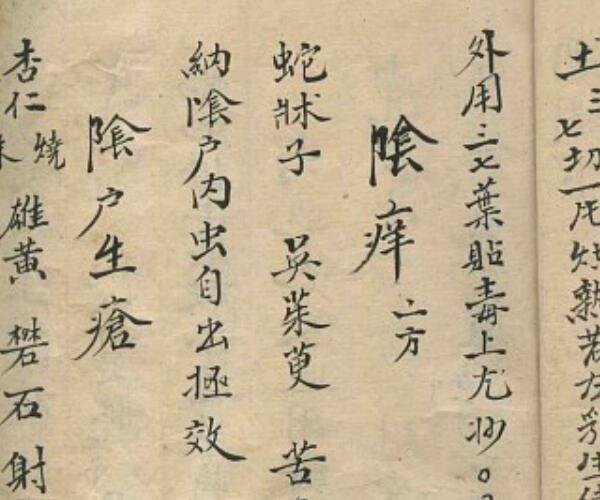 土三七切一片
外用三七葉貼毒上尤妙。
陰癢二方
蛇牀子 吳茱萸 苦
納陰户内虫自出極效
陰户生瘡
杏仁燒 雄黄 礬石 射